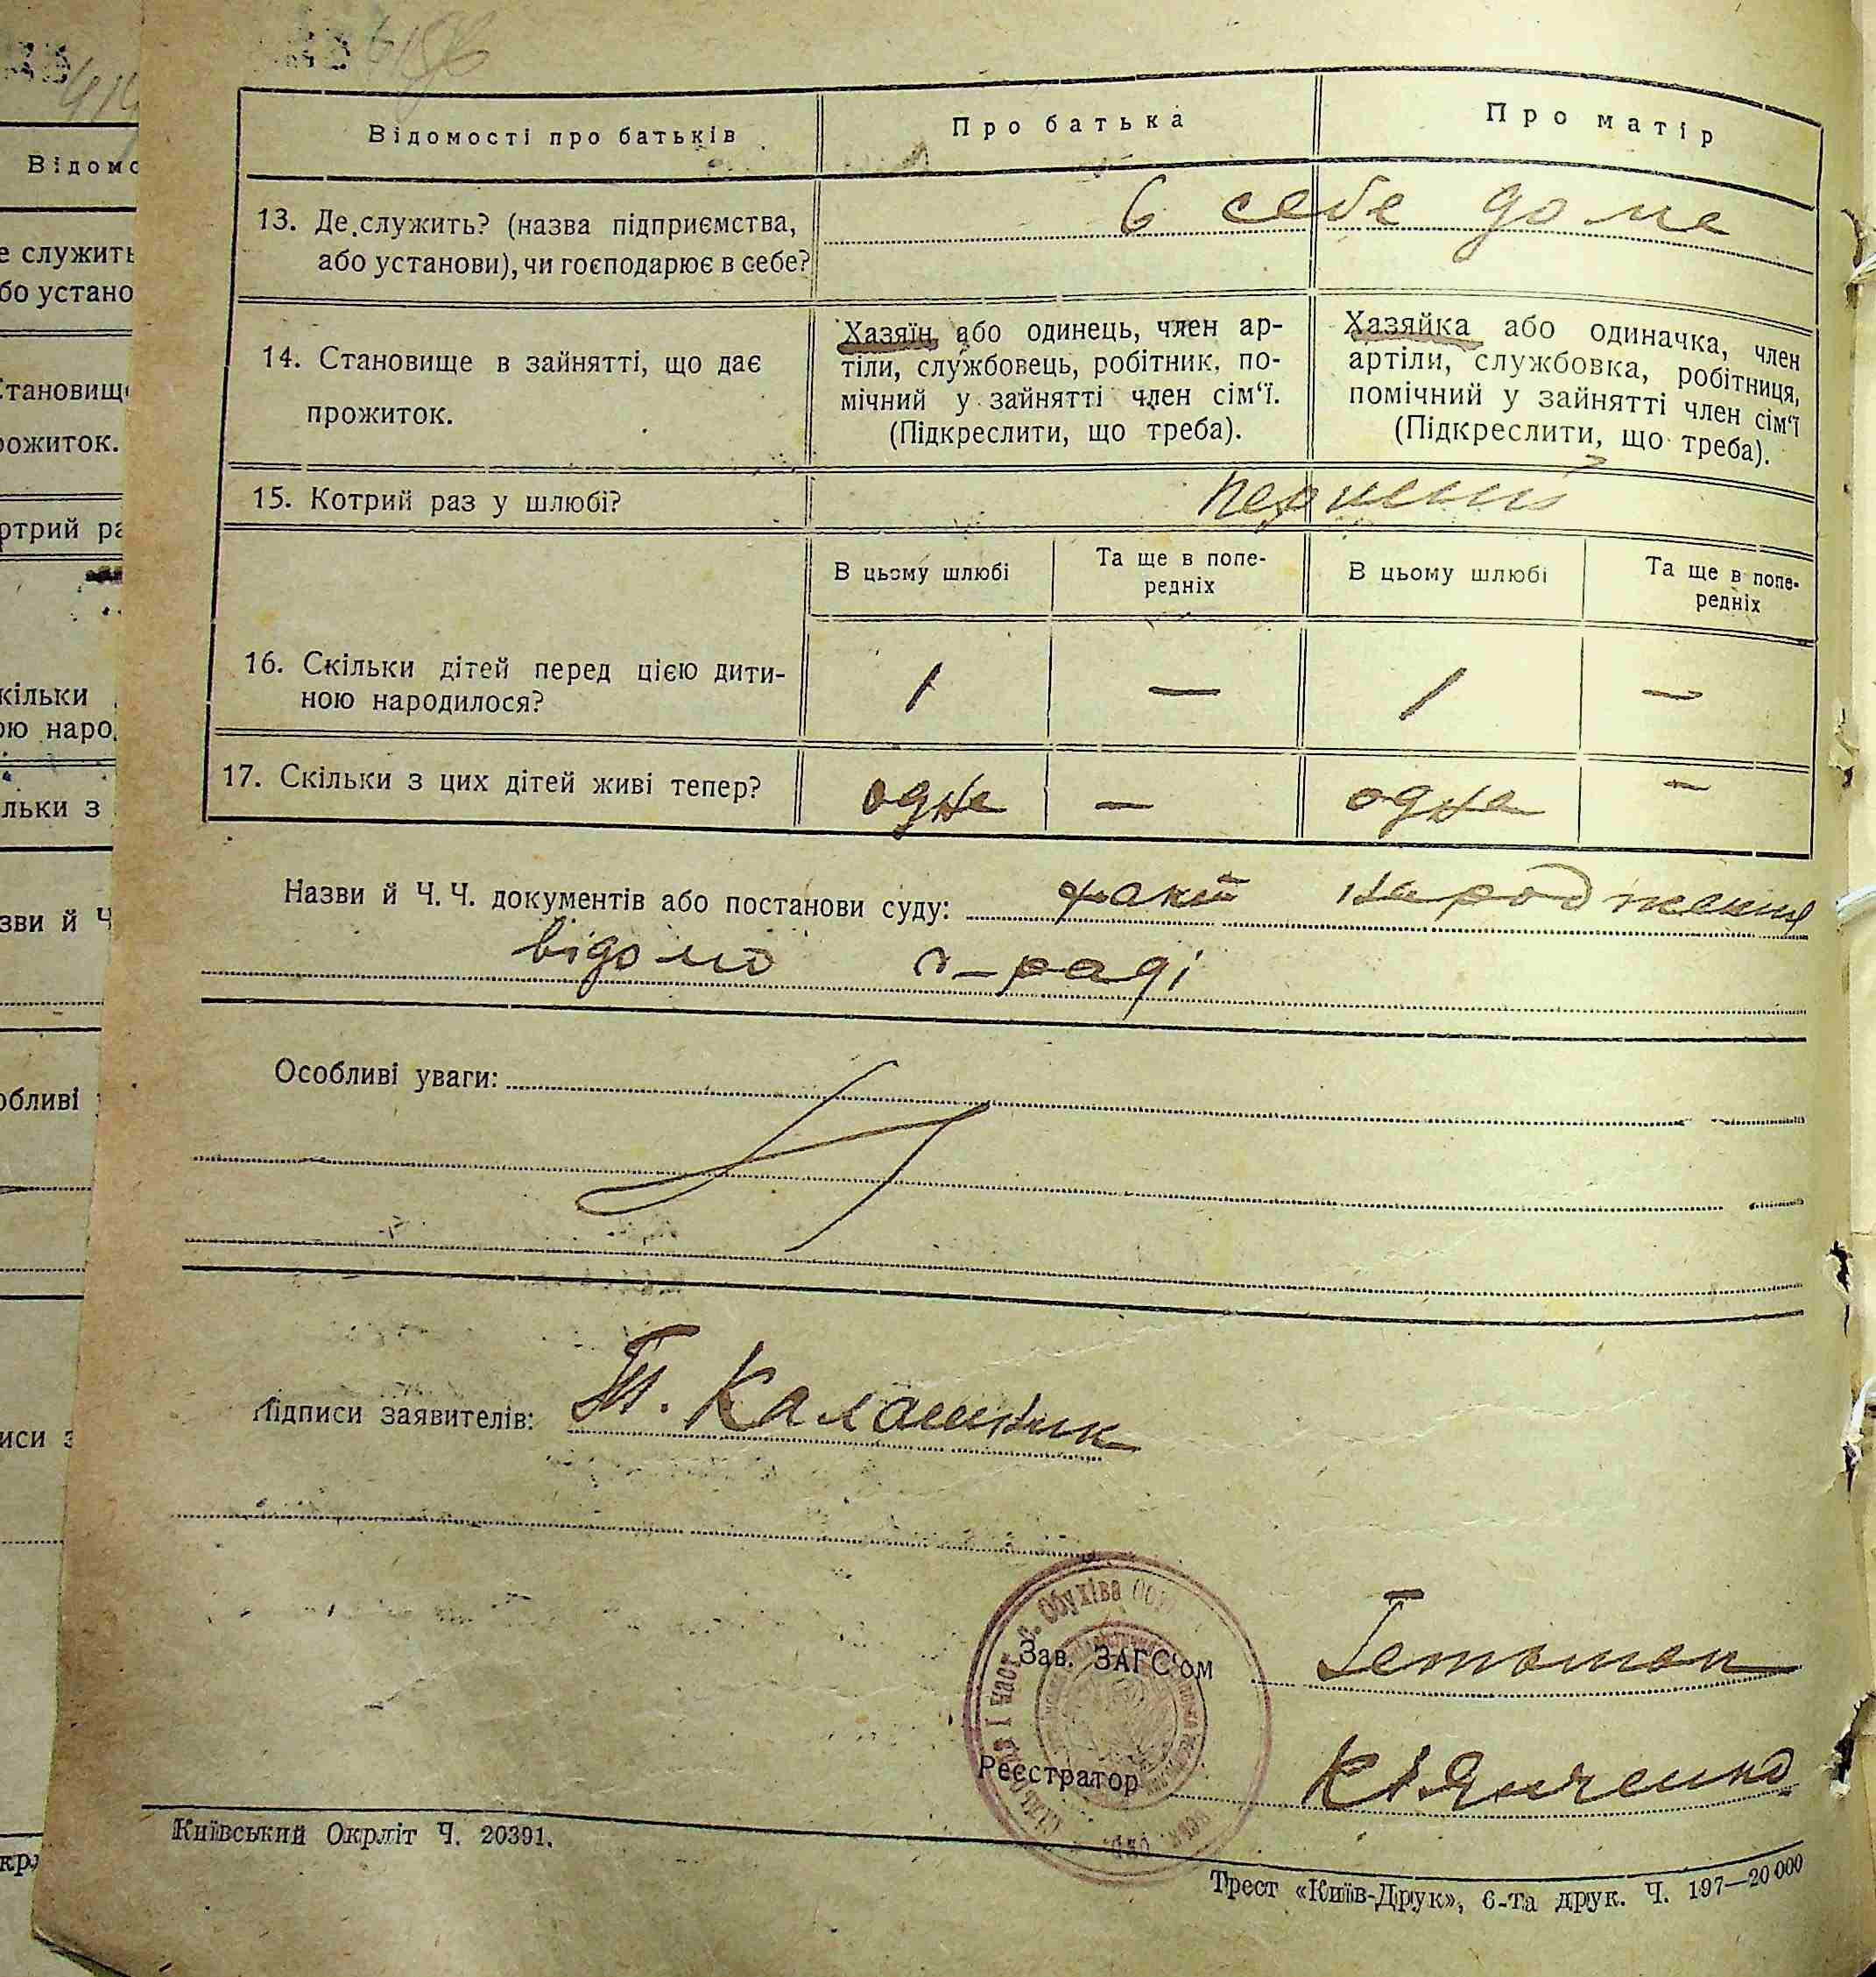 Відомості про батьків
Про батька
Про матір
13. Де служить? (назва підприємства,
або установи), чи господарює в себе?
в себе доме
14. Становище в зайнятті, що дає
прожиток.
Хазяїн або одинець, член ар-
тіли, службовець, робітник, по-
мічний у зайнятті член сім'ї.
(Підкреслити, що треба).
Хазяйка або одиначка, член
артіли, службовка, робітниця,
помічний у зайнятті член сім'ї
(Підкреслити, що треба).
15. Котрий раз у шлюбі?
первий
В цьому шлюбі
Та ще в попе-
редніх
В цьому шлюбі
Та ще в попе-
редніх
16. Скільки дітей перед цією дити-
ною народилося?
1 — 1 —
17. Скільки з цих дітей живі тепер?
одне — одне —
Назви й Ч. Ч. документів або постанови суду: факт народження
відомо с-раді
Особливі уваги:
Підписи заявителів: Калашник
с. Обухіва
Зав. ЗАГС'ом Гетьман
Реєстратор
Київський Окрліт Ч. 20391.
Трест «Київ-Друк», 6-та друк. Ч. 197—20 000
Відомо
е служить
бо устано
Становище
рожиток.
отрий ра
кільки
ою наро
ільки з
зви й Ч
обливі
иси з